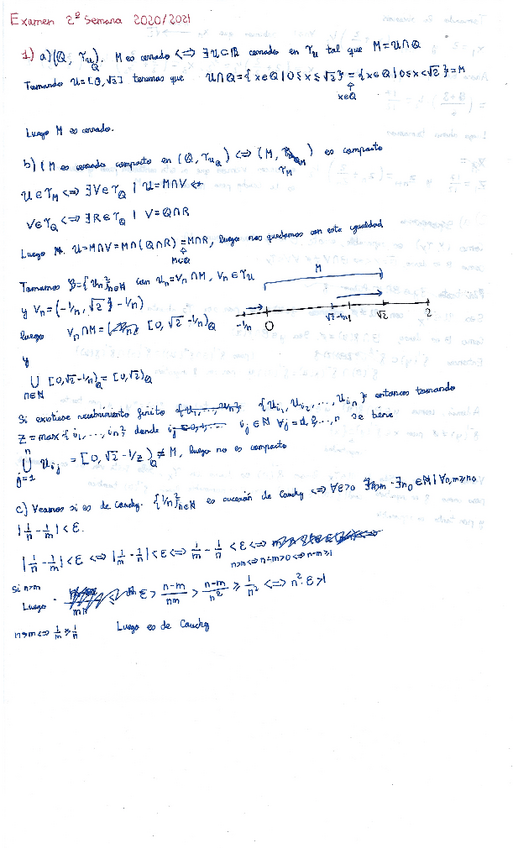 Examen 2ª Semana 2020/2021
1) a) (Q, τ_u_Q). M es cerrado <=> ∃ U ⊂ R cerrado en τ_u tal que M = U ∩ Q
Tomando U = [0, √2] tenemos que U ∩ Q = {x ∈ Q | 0 ≤ x ≤ √2} = {x ∈ Q | 0 ≤ x < √2} = M
x ∈ Q
Luego M es cerrado.
b) (M es cerrado compacto en (Q, τ_u_Q) <=> (M, τ_u_Q_M) es compacto
τ_M
U ∈ τ_M <=> ∃ V ∈ τ_Q | U = M ∩ V
V ∈ τ_Q <=> ∃ R ∈ τ_Q | V = Q ∩ R
Luego U = M ∩ V = M ∩ (Q ∩ R) = M ∩ R, luego nos quedamos con esta igualdad
M ⊂ Q
Tomamos = {U_n}_{n∈N} con U_n = V_n ∩ M, V_n ∈ τ_u
M
y V_n = (-1/n, √2 - 1/n)
-1/n 0 √2 - 1/n √2 2
luego V_n ∩ M = [0, √2 - 1/n)_Q
y
⋃ [0, √2 - 1/n)_Q = [0, √2)_Q
n ∈ N
Si existiese recubrimiento finito {U_{i_1}, U_{i_2}, ..., U_{i_n}} entonces tomando
z = max {i_1, ..., i_n} donde i_j ∈ N ∀ j = 1, 2, ..., n se tiene
n
⋃ U_{i_j} = [0, √2 - 1/z)_Q ≠ M, luego no es compacto
j=1
c) Veamos si es de Cauchy. {1/n}_{n∈N} es sucesión de Cauchy <=> ∀ε>0 ∃ n_0 ∈ N | ∀ n,m ≥ n_0
|1/n - 1/m| < ε.
|1/n - 1/m| < ε <=> |1/m - 1/n| < ε <=> 1/m - 1/n < ε <=>
n>m <=> n-m>0 <=> n-m≥1
Si n>m
Luego ε > (n-m)/(nm) > (n-m)/n² ≥ 1/n² <=> n²·ε > 1
n>m <=> 1/m ≥ 1/n Luego es de Cauchy